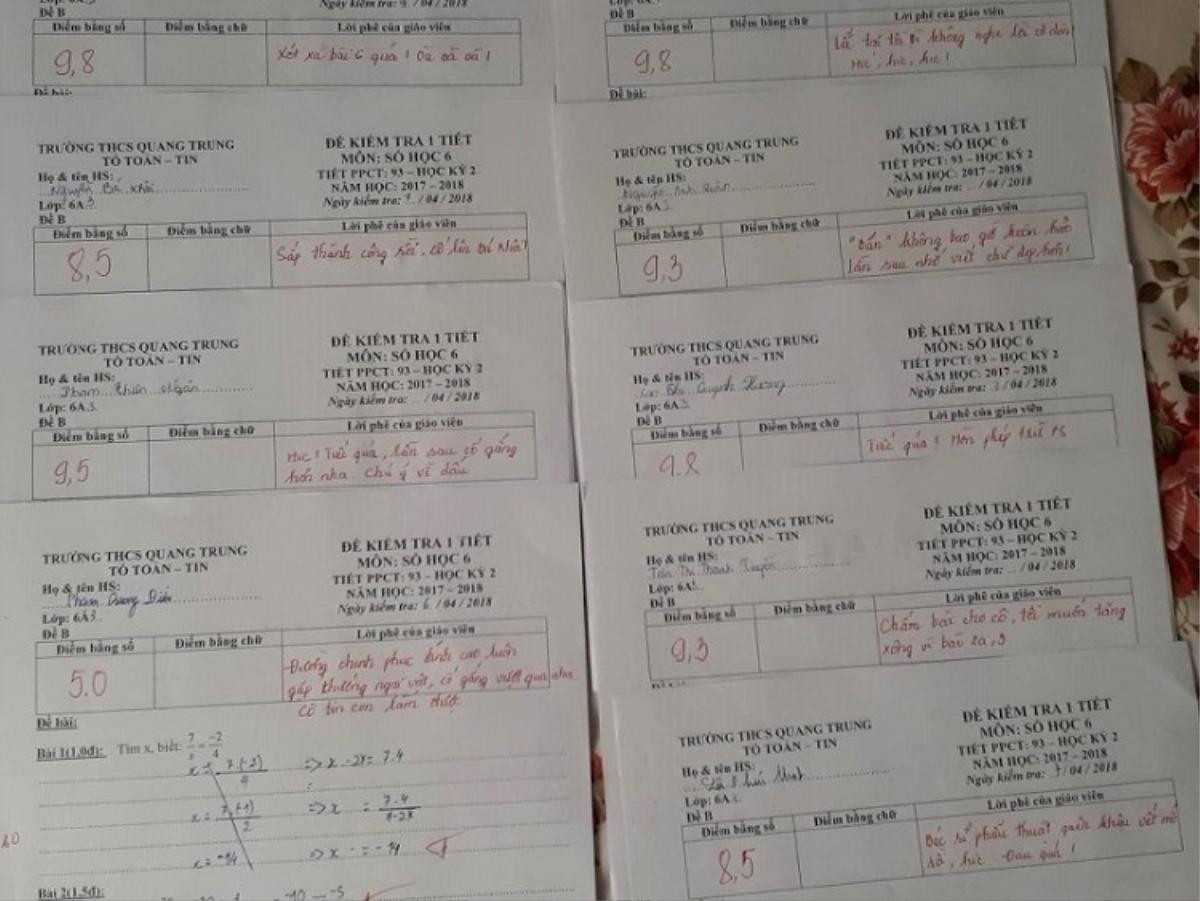 Ngày kiểm tra: 9. / 04 / 2018
Đề B
Điểm bằng số Điểm bằng chữ Lời phê của giáo viên
9,8
Xót xa bài 6 quá! Oà oà oà!
Đề bài:
TRƯỜNG THCS QUANG TRUNG
TỔ TOÁN – TIN
Họ & tên HS:
Nguyễn Bá Khôi
Lớp: 6A3
Đề B
ĐỀ KIỂM TRA 1 TIẾT
MÔN: SỐ HỌC 6
TIẾT PPCT: 93 – HỌC KỲ 2
NĂM HỌC: 2017 – 2018
Ngày kiểm tra: 9. / 04 / 2018
Điểm bằng số Điểm bằng chữ Lời phê của giáo viên
8,5
Sắp thành công rồi, cố lên tí nha!
TRƯỜNG THCS QUANG TRUNG
TỔ TOÁN – TIN
Họ & tên HS:
Phạm Thiên Ngân
Lớp: 6A3
Đề B
ĐỀ KIỂM TRA 1 TIẾT
MÔN: SỐ HỌC 6
TIẾT PPCT: 93 – HỌC KỲ 2
NĂM HỌC: 2017 – 2018
Ngày kiểm tra: ... / 04 / 2018
Điểm bằng số Điểm bằng chữ Lời phê của giáo viên
9,5
Híc! Tiếc quá, lần sau cố gắng
hơn nha. Chú ý về dấu
TRƯỜNG THCS QUANG TRUNG
TỔ TOÁN – TIN
Họ & tên HS:
Phạm Dương
Lớp: 6A3
Đề B
ĐỀ KIỂM TRA 1 TIẾT
MÔN: SỐ HỌC 6
TIẾT PPCT: 93 – HỌC KỲ 2
NĂM HỌC: 2017 – 2018
Ngày kiểm tra: 6 / 04 / 2018
Điểm bằng số Điểm bằng chữ Lời phê của giáo viên
5.0
Đường chinh phục đỉnh cao luôn
gặp chướng ngại vật, cố gắng vượt qua nha
cô tin con làm được
Đề bài:
Bài 1(1,0đ): Tìm x, biết: 7/x = -2/4
x = 7.(-2)/4 => x.-2 = 7.4
x = 7.(-1)/2 => x = 7.4/-2
x = -14 => x = -14
Bài 2(1,5đ):
Đề B
Điểm bằng số Điểm bằng chữ Lời phê của giáo viên
9,8
Híc, híc, híc!
Đề bài:
TRƯỜNG THCS QUANG TRUNG
TỔ TOÁN – TIN
Họ & tên HS:
Nguyễn Anh
Lớp: 6A3
Đề B
ĐỀ KIỂM TRA 1 TIẾT
MÔN: SỐ HỌC 6
TIẾT PPCT: 93 – HỌC KỲ 2
NĂM HỌC: 2017 – 2018
Ngày kiểm tra: ... / 04 / 2018
Điểm bằng số Điểm bằng chữ Lời phê của giáo viên
9,3
không bao giờ
lần sau nhớ viết chữ đẹp hơn!
TRƯỜNG THCS QUANG TRUNG
TỔ TOÁN – TIN
Họ & tên HS:
Quỳnh Hương
Lớp: 6A3
Đề B
ĐỀ KIỂM TRA 1 TIẾT
MÔN: SỐ HỌC 6
TIẾT PPCT: 93 – HỌC KỲ 2
NĂM HỌC: 2017 – 2018
Ngày kiểm tra: / 04 / 2018
Điểm bằng số Điểm bằng chữ Lời phê của giáo viên
9.8
Tiếc quá! phép trừ PS
TRƯỜNG THCS QUANG TRUNG
TỔ TOÁN – TIN
Họ & tên HS:
Trần Thị Thanh
Lớp: 6A3
Đề B
ĐỀ KIỂM TRA 1 TIẾT
MÔN: SỐ HỌC 6
TIẾT PPCT: 93 – HỌC KỲ 2
NĂM HỌC: 2017 – 2018
Ngày kiểm tra: ... / 04 / 2018
Điểm bằng số Điểm bằng chữ Lời phê của giáo viên
9,3
Chấm bài cho cô, tôi muốn tăng
xông vì bài 2a, 3
TRƯỜNG THCS QUANG TRUNG
TỔ TOÁN – TIN
Họ & tên HS:
Lớp: 6A
Đề B
ĐỀ KIỂM TRA 1 TIẾT
MÔN: SỐ HỌC 6
TIẾT PPCT: 93 – HỌC KỲ 2
NĂM HỌC: 2017 – 2018
Ngày kiểm tra: / 04 / 2018
Điểm bằng số Điểm bằng chữ Lời phê của giáo viên
8,5
Bác sĩ phẫu thuật quên khâu vết mổ
rồi, híc. Đau quá!